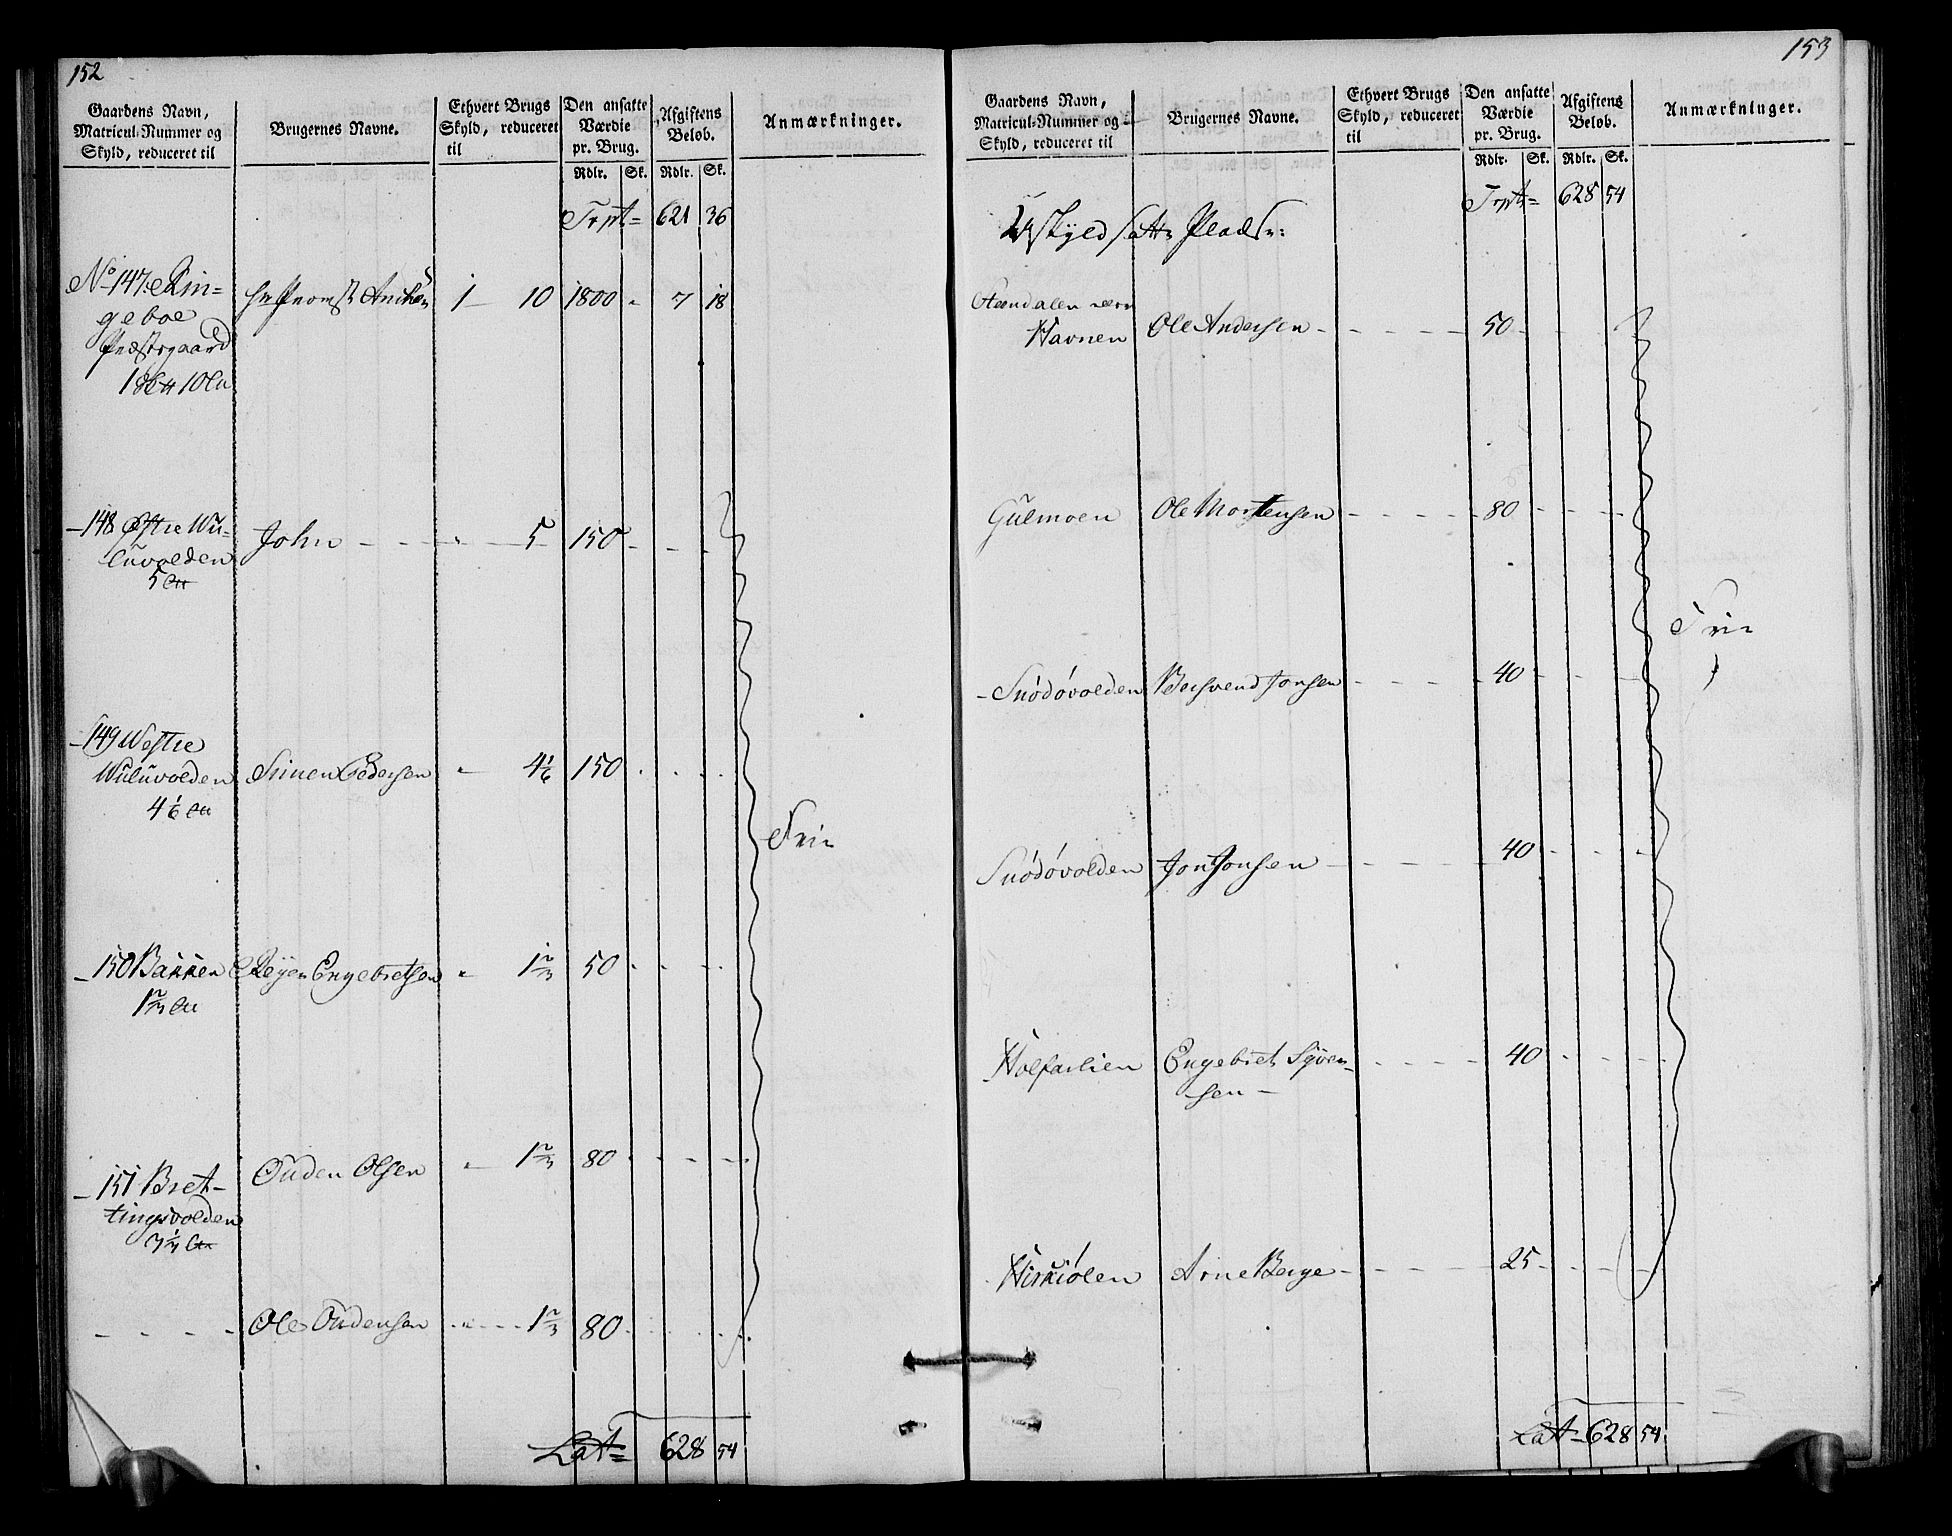 152
Gaardens Navn,
Matricul-Nummer og
Skyld, reduceret til
Brugernes Navne.
Ethvert Brugs
Skyld, reduceret
til
Den ansatte
Værdie
pr. Brug.
Afgiftens
Beløb.
Anmærkninger.
Rdlr. Sk. Rdlr. Sk.
Trpt= 621 36
No 147. Rin=
geboe
Præstegaard
1 10
Hr Provst 1 10 1800 7 18
148 Østre Wu-
luvolden
5
John 5 150
149 Westre
Wuluvolden
4 1/6
Simen Pedersen 4 1/6 150
Frie
150 Bakken
1 2/3
Engebretsen 1 2/3 50
151 Bret-
tingsvolden
3 1/3
Ouden Olsen 1 2/3 80
Ole Oudensen 1 2/3 80
Lat= 628 54
153
Gaardens Navn,
Matricul-Nummer og
Skyld, reduceret til
Brugernes Navne.
Ethvert Brugs
Skyld, reduceret
til
Den ansatte
Værdie
pr. Brug.
Afgiftens
Beløb.
Anmærkninger.
Rdlr. Sk. Rdlr. Sk.
Trpt= 628 54
Uskyldsatte Pladse:
Havnen Ole Andersen 50
Gulmoen Ole Mortensen 80
Frie
Snödövolden Besvend Jonsen 40
Snödövolden Jon Jonsen 40
Holfarlien Engebret Syver=
sen 40
Hirkiölen Arne Berge 25
Lat= 628 54